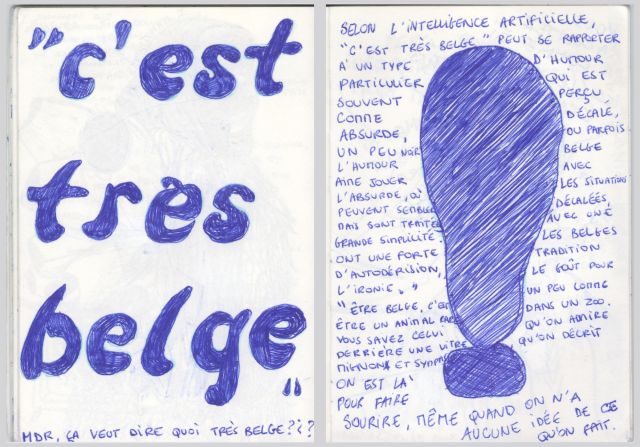 "c'est
très
belge"
MDR, ÇA VEUT DIRE QUOI TRÈS BELGE?!?
SELON L'INTELLIGENCE ARTIFICIELLE,
"C'EST TRÈS BELGE" PEUT SE RAPPORTER
À UN TYPE D'HUMOUR
PARTICULIER QUI EST
SOUVENT PERÇU
COMME DÉCALÉ,
ABSURDE, OU PARFOIS
UN PEU NOIR BELGE
L'HUMOUR AVEC
AIME JOUER LES SITUATIONS
L'ABSURDE, OÙ DÉCALÉES,
PEUVENT SEMBLER AVEC UNE
MAIS SONT TRAITÉES LES BELGES
GRANDE SIMPLICITÉ. TRADITION
ONT UNE FORTE LE GOÛT POUR
D'AUTODÉRISION, UN PEU COMME
L'IRONIE."
"ÊTRE BELGE, C'EST DANS UN ZOO.
ÊTRE UN ANIMAL RARE QU'ON ADMIRE
VOUS SAVEZ CELUI QU'ON DÉCRIT
DERRIÈRE UNE VITRE
MIGNON ET SYMPA
ON EST LÀ
POUR FAIRE
SOURIRE, MÊME QUAND ON N'A
AUCUNE IDÉE DE CE
QU'ON FAIT.